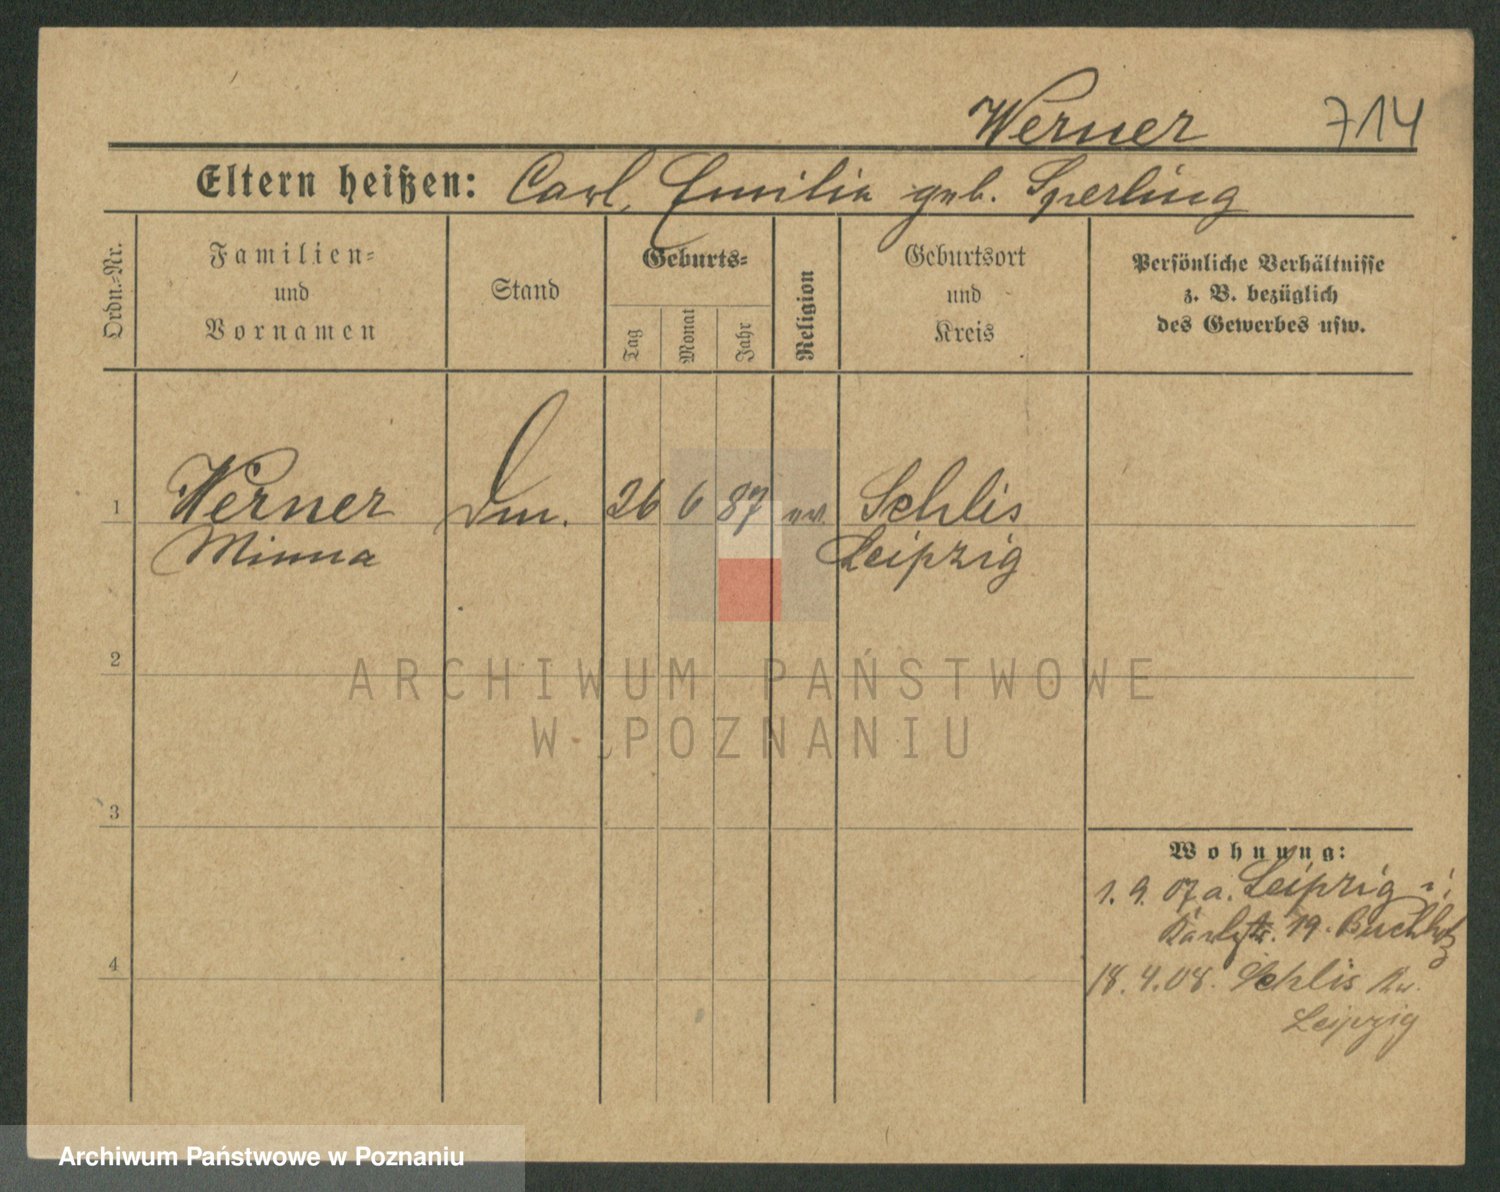 Werner 714
Eltern heißen: Carl, Emilie geb. Sperling
Ordn.-Nr.
Familien-
und
Vornamen
Stand
Geburts-
Tag
Monat
Jahr
Religion
Geburtsort
und
Kreis
Persönliche Verhältnisse
z. B. bezüglich
des Gewerbes usw.
1 Werner Dm. 26 6 87 ev. Schlis
Minna Leipzig
2
ARCHIWUM PAŃSTWOWE
W POZNANIU
3
Wohnung:
1. 9. 07 a. Leipzig
19. Buchholz
4
18. 4. 08. Schlis Kr.
Leipzig
Archiwum Państwowe w Poznaniu